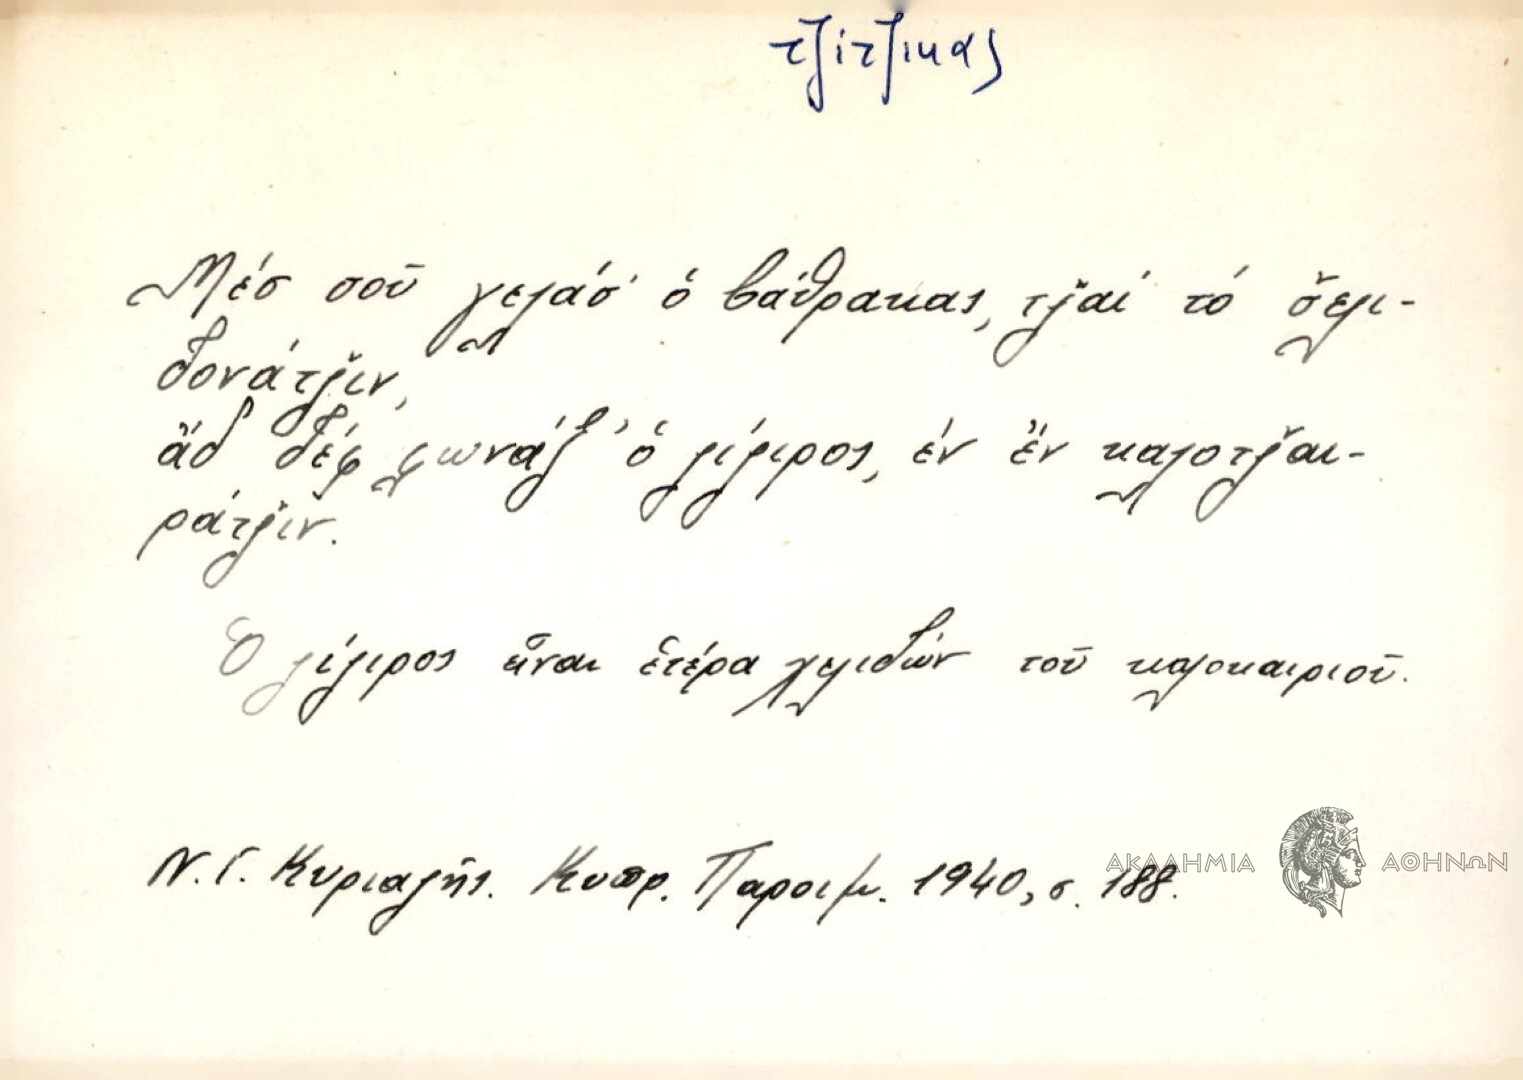 τζίτζικας
Μέσ σοῦ γελάσ' ὁ βάθρακας, τζ̆αί τό σ̆ελι-
δονάτζ̆ιν,
ἄδ δέφ φωνάξ' ὁ ζίζιρος, ἐν ἔν καλοτζ̆αι-
ράτζ̆ιν.
Ὁ ζίζιρος εἶναι ἑτέρα χελιδών τοῦ καλοκαιριοῦ.
Ν. Γ. Κυριαζῆς. Κυπρ. Παροιμ. 1940, σ. 188.
ΑΚΑΔΗΜΙΑ ΑΘΗΝΩΝ